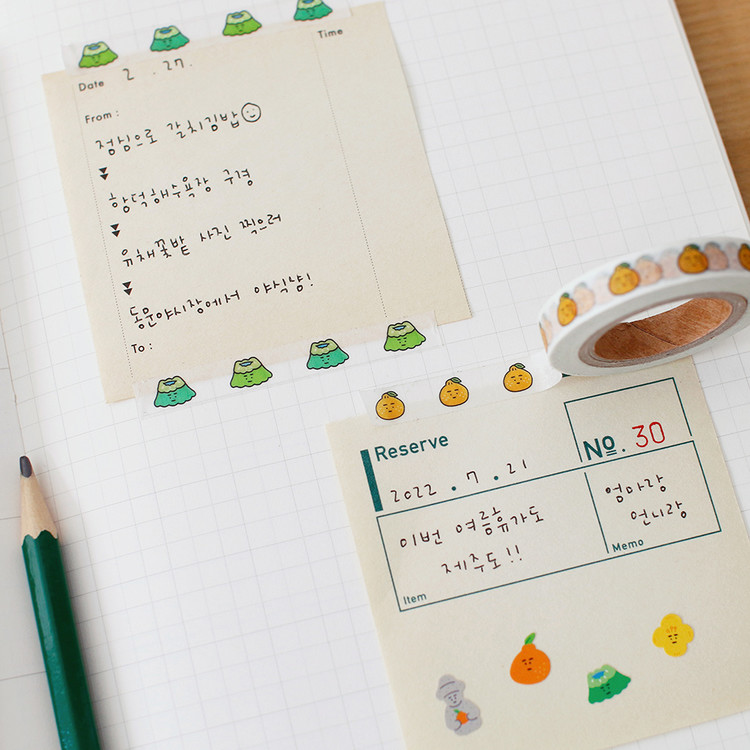 Time
Date 2 . 27.
From :
점심으로 갈치김밥
함덕해수욕장 구경
유채꽃밭 사진 찍으러
동문야시장에서 야식냠!
To :
Reserve
No. 30
2022 . 7 . 21
이번 여름휴가도
제주도!!
Item
엄마랑
언니랑
Memo